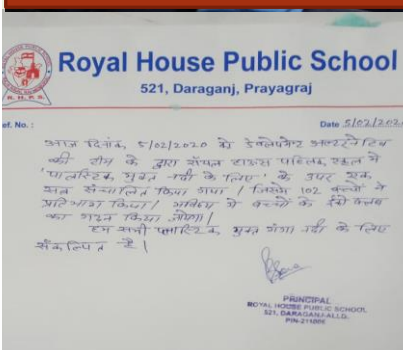 Royal House Public School
521, Daraganj, Prayagraj
R.H.P.S.
ef. No. :
Date 5/02/2020
आज दिनांक 5/02/2020 को डेवलपमेन्ट अल्टरनेटिव
की टीम के द्वारा रॉयल हाउस पब्लिक स्कूल में
"प्लास्टिक मुक्त नदी के लिए" के उपर एक
सत्र संचालित किया गया। जिसमे 102 बच्चों ने
प्रतिभाग किया। भविष्य में बच्चों के ईको क्लब
का गठन किया जायेगा।
हम सभी प्लास्टिक मुक्त गंगा नदी के लिए
संकल्पित है।
PRINCIPAL
ROYAL HOUSE PUBLIC SCHOOL
521, DARAGANJ-ALLD.
PIN-211006